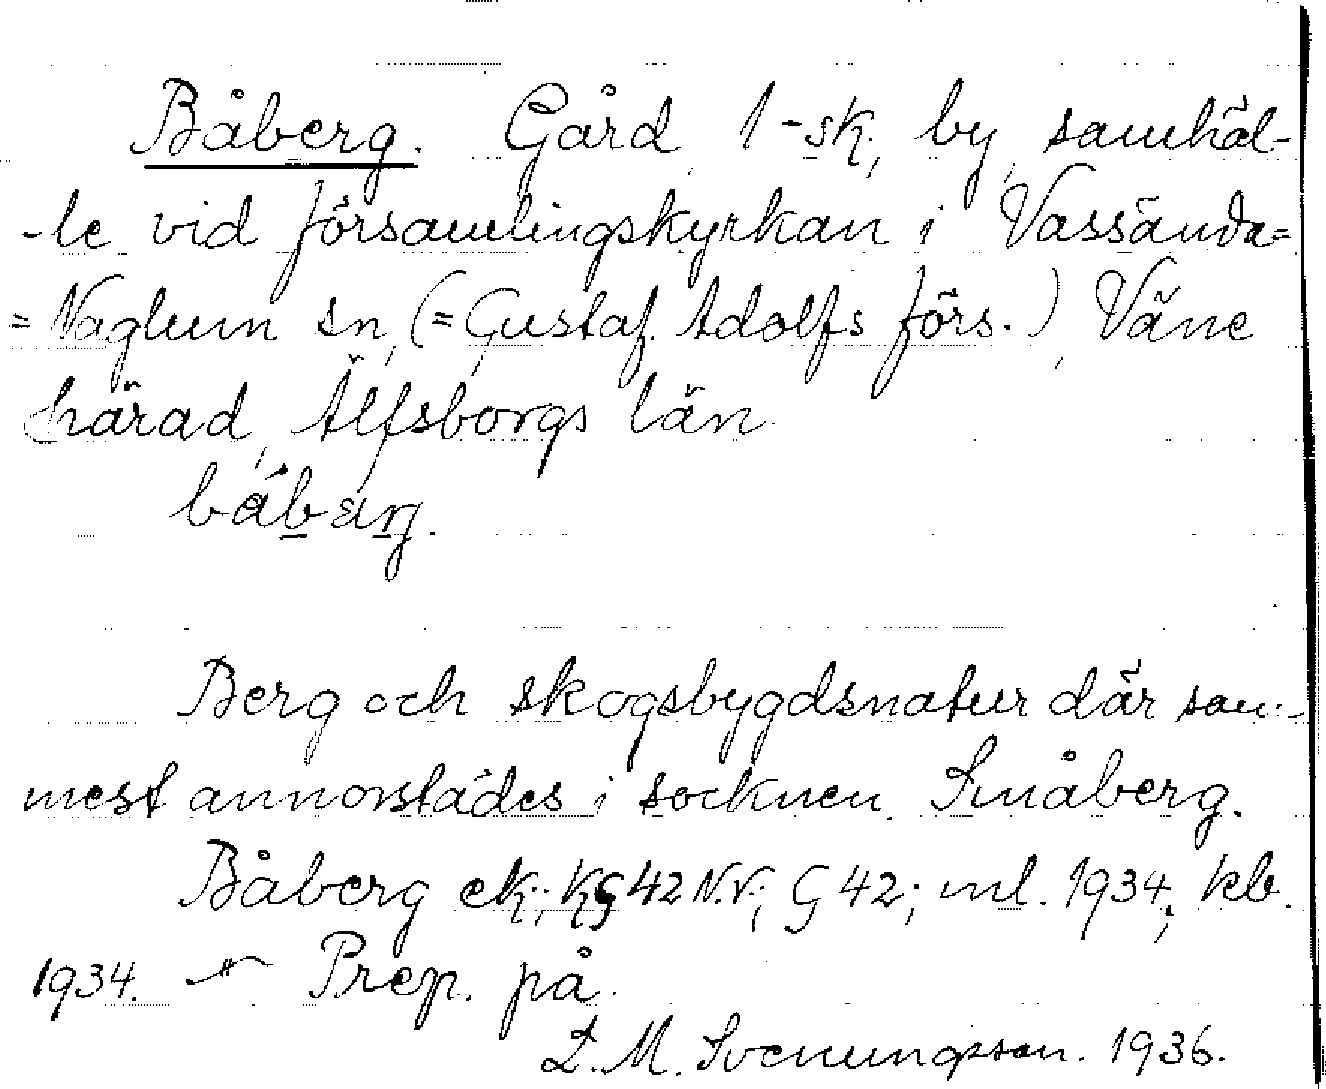 Båberg. Gård, 1-sk, by, samhäl-
-le vid församlingskyrkan i Vassända=
=Naglum sn, (=Gustaf Adolfs förs.), Väne
härad, Älfsborgs län.
Berg och skogsbygdsnatur där sam-
mest annorstädes i socknen. Småberg.
Båberg ek; KG 42 N.V.; G 42; ml. 1934; kb.
1934. Prep. på.
L. M. Svenungsson. 1936.